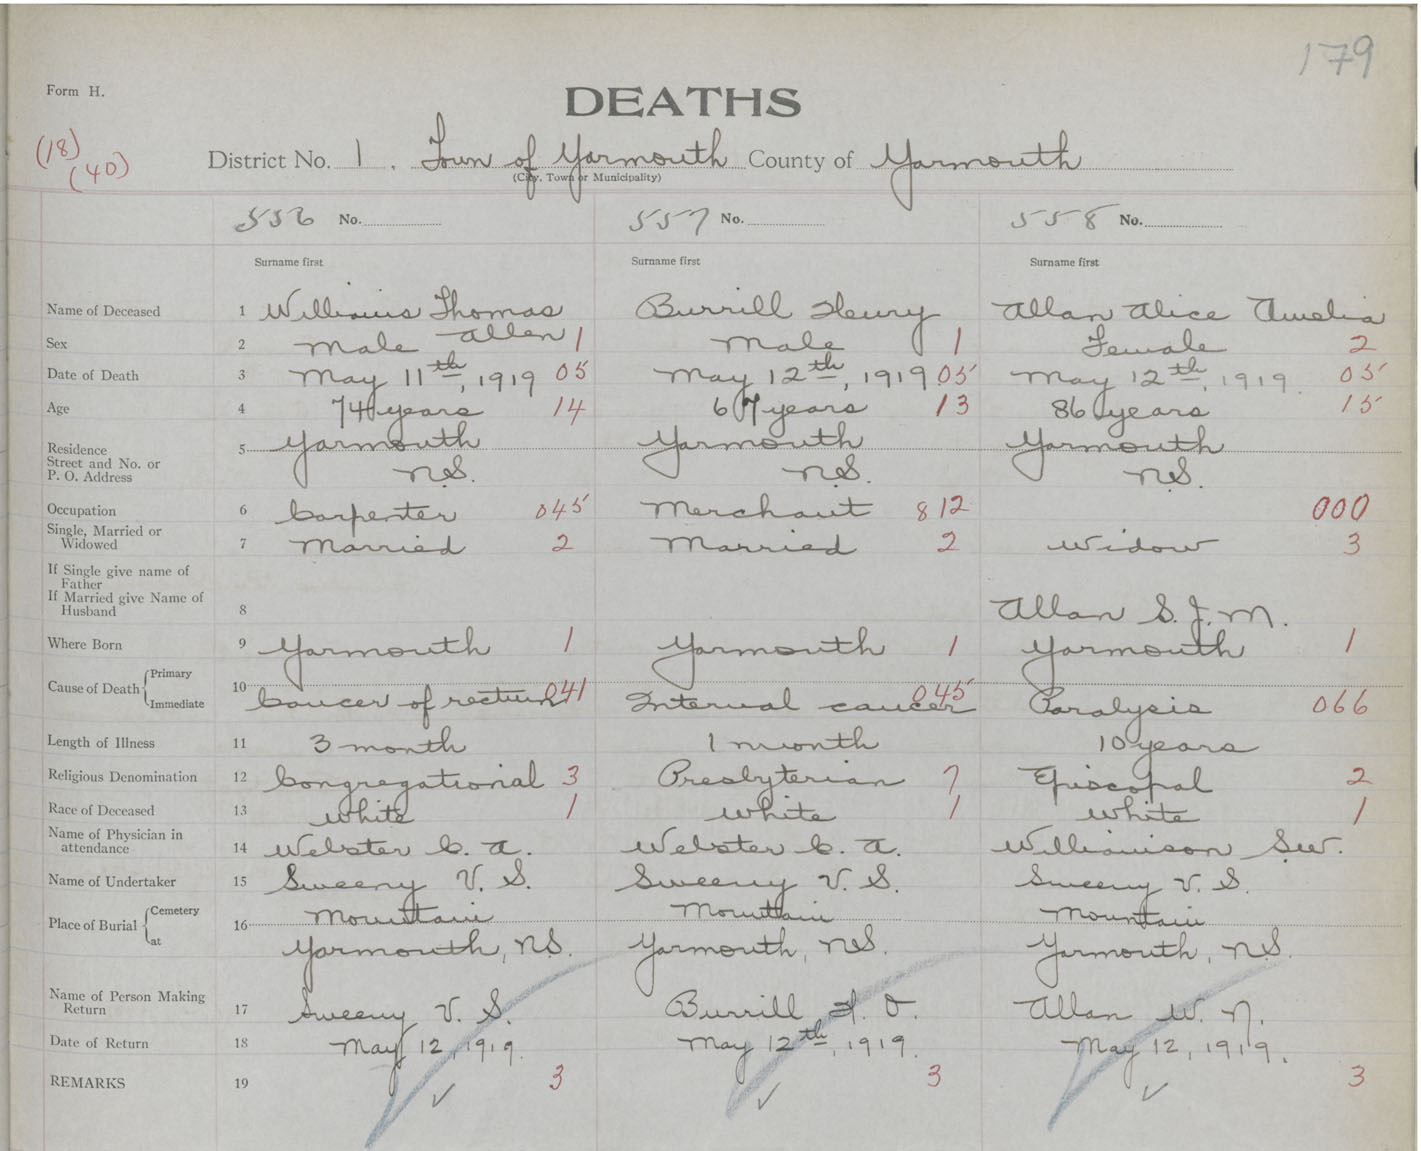 179
Form H.
DEATHS
(18)
(40)
District No. 1. Town of Yarmouth County of Yarmouth
(City, Town or Municipality)
556 No. 557 No. 558 No.
Surname first Surname first Surname first
Name of Deceased 1 Williams Thomas Burrill Henry Allan Alice Amelia
Allen
Sex 2 Male 1 Male 1 Female 2
Date of Death 3 May 11th, 1919 05 May 12th, 1919 05 May 12th, 1919 05
Age 4 74 years 14 67 years 13 86 years 15
Residence 5 Yarmouth Yarmouth Yarmouth
Street and No. or
P. O. Address N.S. N.S. N.S.
Occupation 6 Carpenter 045 Merchant 812 000
Single, Married or
Widowed 7 Married 2 Married 2 Widow 3
If Single give name of
Father
If Married give Name of
Husband 8 Allan S. J. M.
Where Born 9 Yarmouth 1 Yarmouth 1 Yarmouth 1
Cause of Death { Primary 10
Immediate Cancer of rectum 041 Internal cancer 045 Paralysis 066
Length of Illness 11 3 month 1 month 10 years
Religious Denomination 12 Congregational 3 Presbyterian 7 Episcopal 2
Race of Deceased 13 White 1 White 1 White 1
Name of Physician in
attendance 14 Webster C. A. Webster C. A. Williamson S.W.
Name of Undertaker 15 Sweeny V. S. Sweeny V. S. Sweeny V. S.
Place of Burial { Cemetery 16 Mountain Mountain Mountain
at Yarmouth, N.S. Yarmouth, N.S. Yarmouth, N.S.
Name of Person Making
Return 17 Sweeny V. S. Burrill O. Allan W. N.
Date of Return 18 May 12, 1919. May 12th, 1919. May 12, 1919.
REMARKS 19 3 3 3